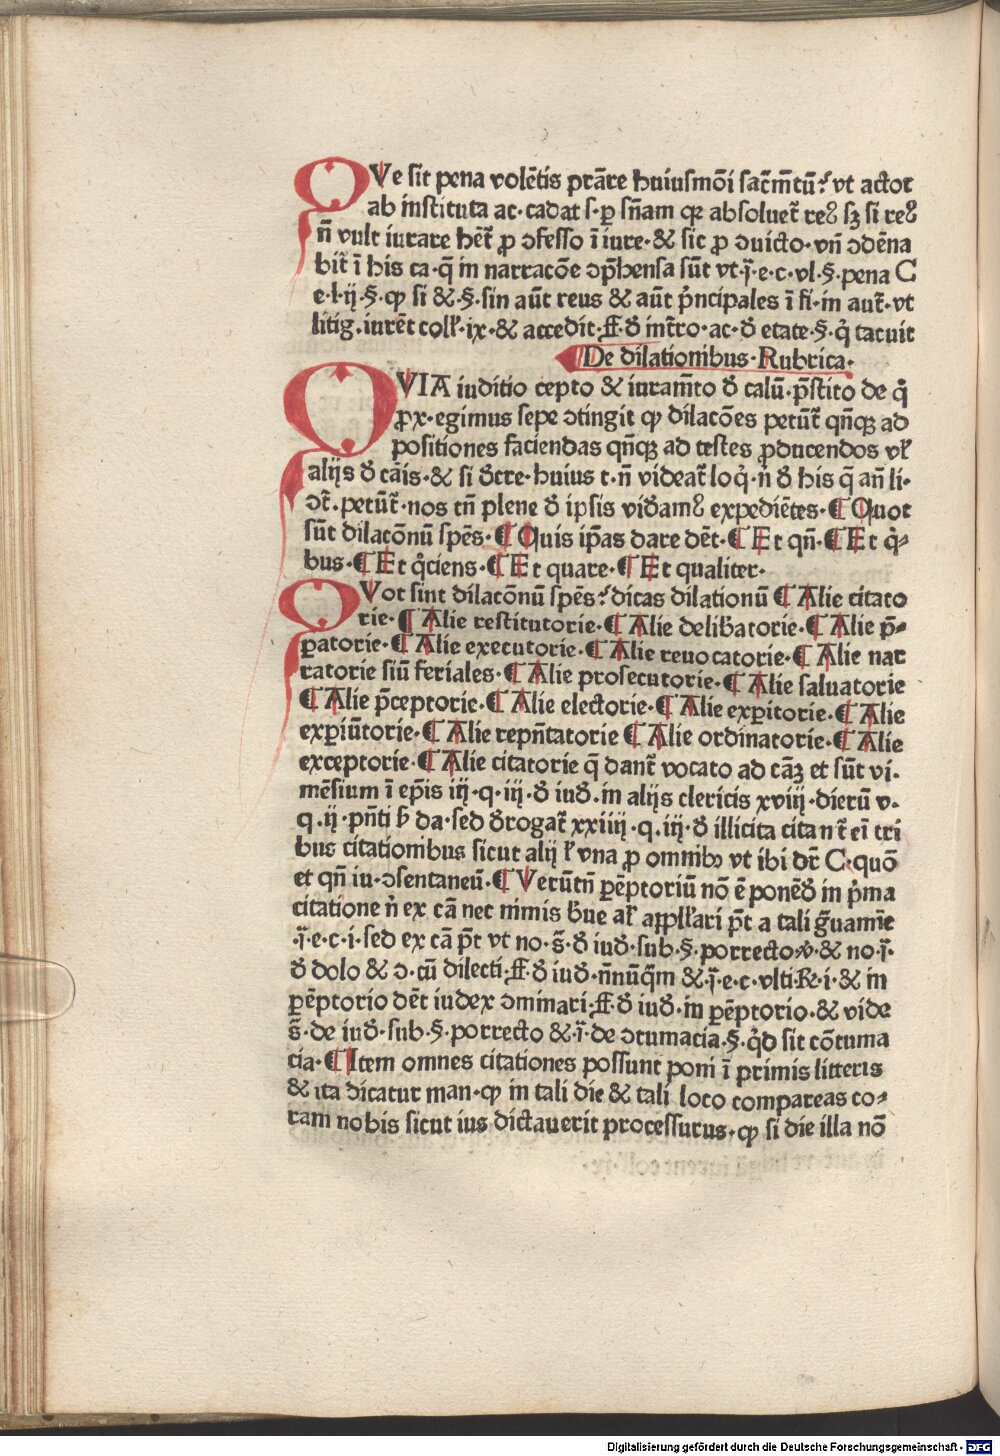 QVe sit pena volẽtis prãre huiusmõi sac̄m̄tū? vt actor
ab instituta ac· cadat s· ꝑ sñam qꝛ absoluet̄ reꝰ sꝫ si reꝰ
n̄ vult iurare hẽt̄ ꝓ ↄfesso ī iure· & sic ꝓ ↄuicto· vñ ↄdēna
bit̄ ī his ca· q̄ in narracõe ↄp̄hensa sūt vt· j̄· e· c· vl· §· pena C
e· l· ij· §· ꝙ si & §· sin aūt reus & aūt p̄ncipales ī fi· in aut̄· vt
litig· iurēt coll̄· ix· & accedit· ff· đ int̄ro· ac· đ etate §· q̇ tacuit
De dilationibus· Rubrica·
QVIA iuditio cepto & iuram̄to đ calū· p̄stito de q̇
ꝓx· egimus sepe ↄtingit ꝙ dilacões petūt̄ qñqꝫ ad
positiones faciendas qñqꝫ ad testes ꝓducendos vl̄
alijs đ cāis· & si đcre· huius t· n̄ videat̄ loq̇· n̄ đ his q̄ añ li·
ↄt̄· petūt̄· nos tñ plene đ ipsis viđamꝰ expediētes· ¶ Quot
sūt dilacõnū spẽs· ¶ Quis ip̄as dare dēt· ¶ Et qñ· ¶ Et q̇⸗
bus· ¶ Et q̇ciens· ¶ Et quare· ¶ Et qualiter·
QVot sint dilacõnū spẽs? dicas dilationū ¶ Alie citato
rie· ¶ Alie restitutorie· ¶ Alie delib̄atorie· ¶ Alie p̄⸗
ꝑatorie· ¶ Alie executorie· ¶ Alie reuocatorie· ¶ Alie nar
ratorie siū feriales· ¶ Alie prosecutorie· ¶ Alie saluatorie
¶ Alie p̄ceptorie· ¶ Alie electorie· ¶ Alie exꝑitorie· ¶ Alie
exꝑiūtorie· ¶ Alie repñtatorie ¶ Alie ordinatorie· ¶ Alie
exceptorie· ¶ Alie citatorie q̄ dant̄ vocato ad cāꝫ et sūt vi·
mēsium ī ep̄is iij· q· iij· đ iuđ· in alijs clericis xviij· dierū v·
q· ij· pñti ƀ da· sed đrogat̄ xxiiij· q· iij· đ illicita citant̄ eī tri
bus citationibus sicut alij l̄ vna ꝓ omnibꝫ vt ibi dr̄ C· quõ
et qñ iu· ↄsentaneū· ¶ Verūtñ ꝑēptoriū nō ē ponēđ in p̄ma
citatione n̄ ex cā nec nimis b̄ue al̄ aꝑpll̄ari p̄t a tali g̃uamīe
· j̄· e· c· i· sed ex cā p̄t vt no· s̄· đ iuđ· sub· §· porrecto· v̇· & no· j̄·
đ dolo & ↄ· cū dilecti· ff· đ iuđ· nñnūq̄m & j̄· e· c· vlti· R· i· & in
ꝑēptorio dēt iudex ↄminari· ff· đ iuđ· in ꝑēptorio· & vide
s̄· de iuđ· sub· §· porrecto & j̄· de ↄtumacia· §· q̇d sit cõtuma
cia· ¶ Item omnes citationes possunt poni ī primis litteris
& ita dicatur man· ꝙ in tali die & tali loco compareas co⸗
ram nobis sicut ius dictauerit processurus· ꝙ si die illa nõ
Digitalisierung gefördert durch die Deutsche Forschungsgemeinschaft - DFG